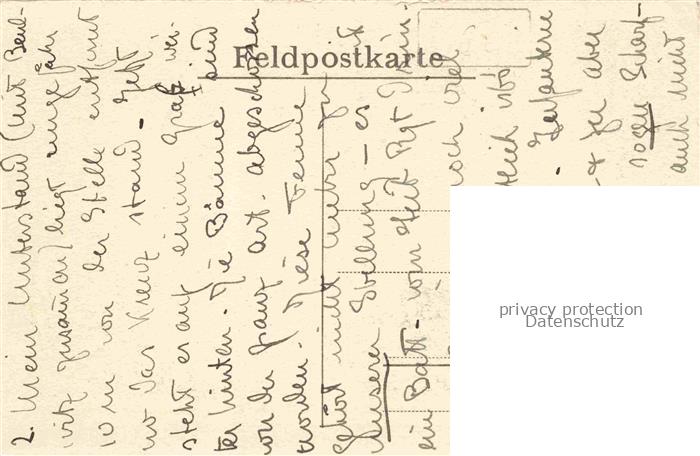 Feldpostkarte
2. Mein Unterstand (mit Beul-
witz zusammen) liegt ungefähr
10 m von der Stelle entfernt
wo das Kreuz stand. Jetzt
steht es auf einem Grab wei-
ter hinten. Die Bäume sind
von der franz. Art. abgeschossen
worden. Diese Ferme
gehört nicht mehr zu
unserer Stellung – es
ein Batt. vom Leib Rgt
noch
Infanterie
aber
Scharf-
auch nicht
privacy protection
Datenschutz